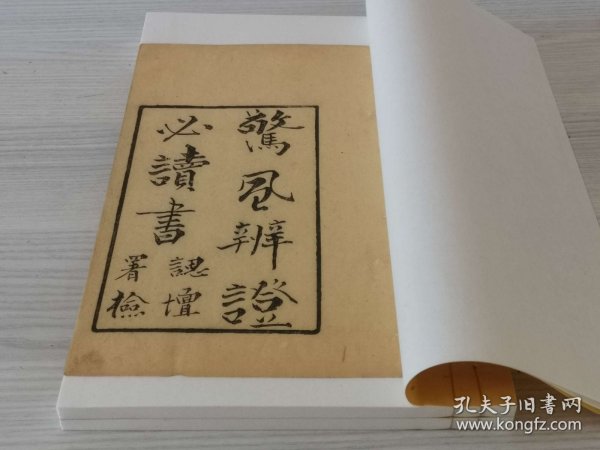 驚風辨證
必讀書
認壇
署檢
孔夫子旧书网
www.kongfz.com